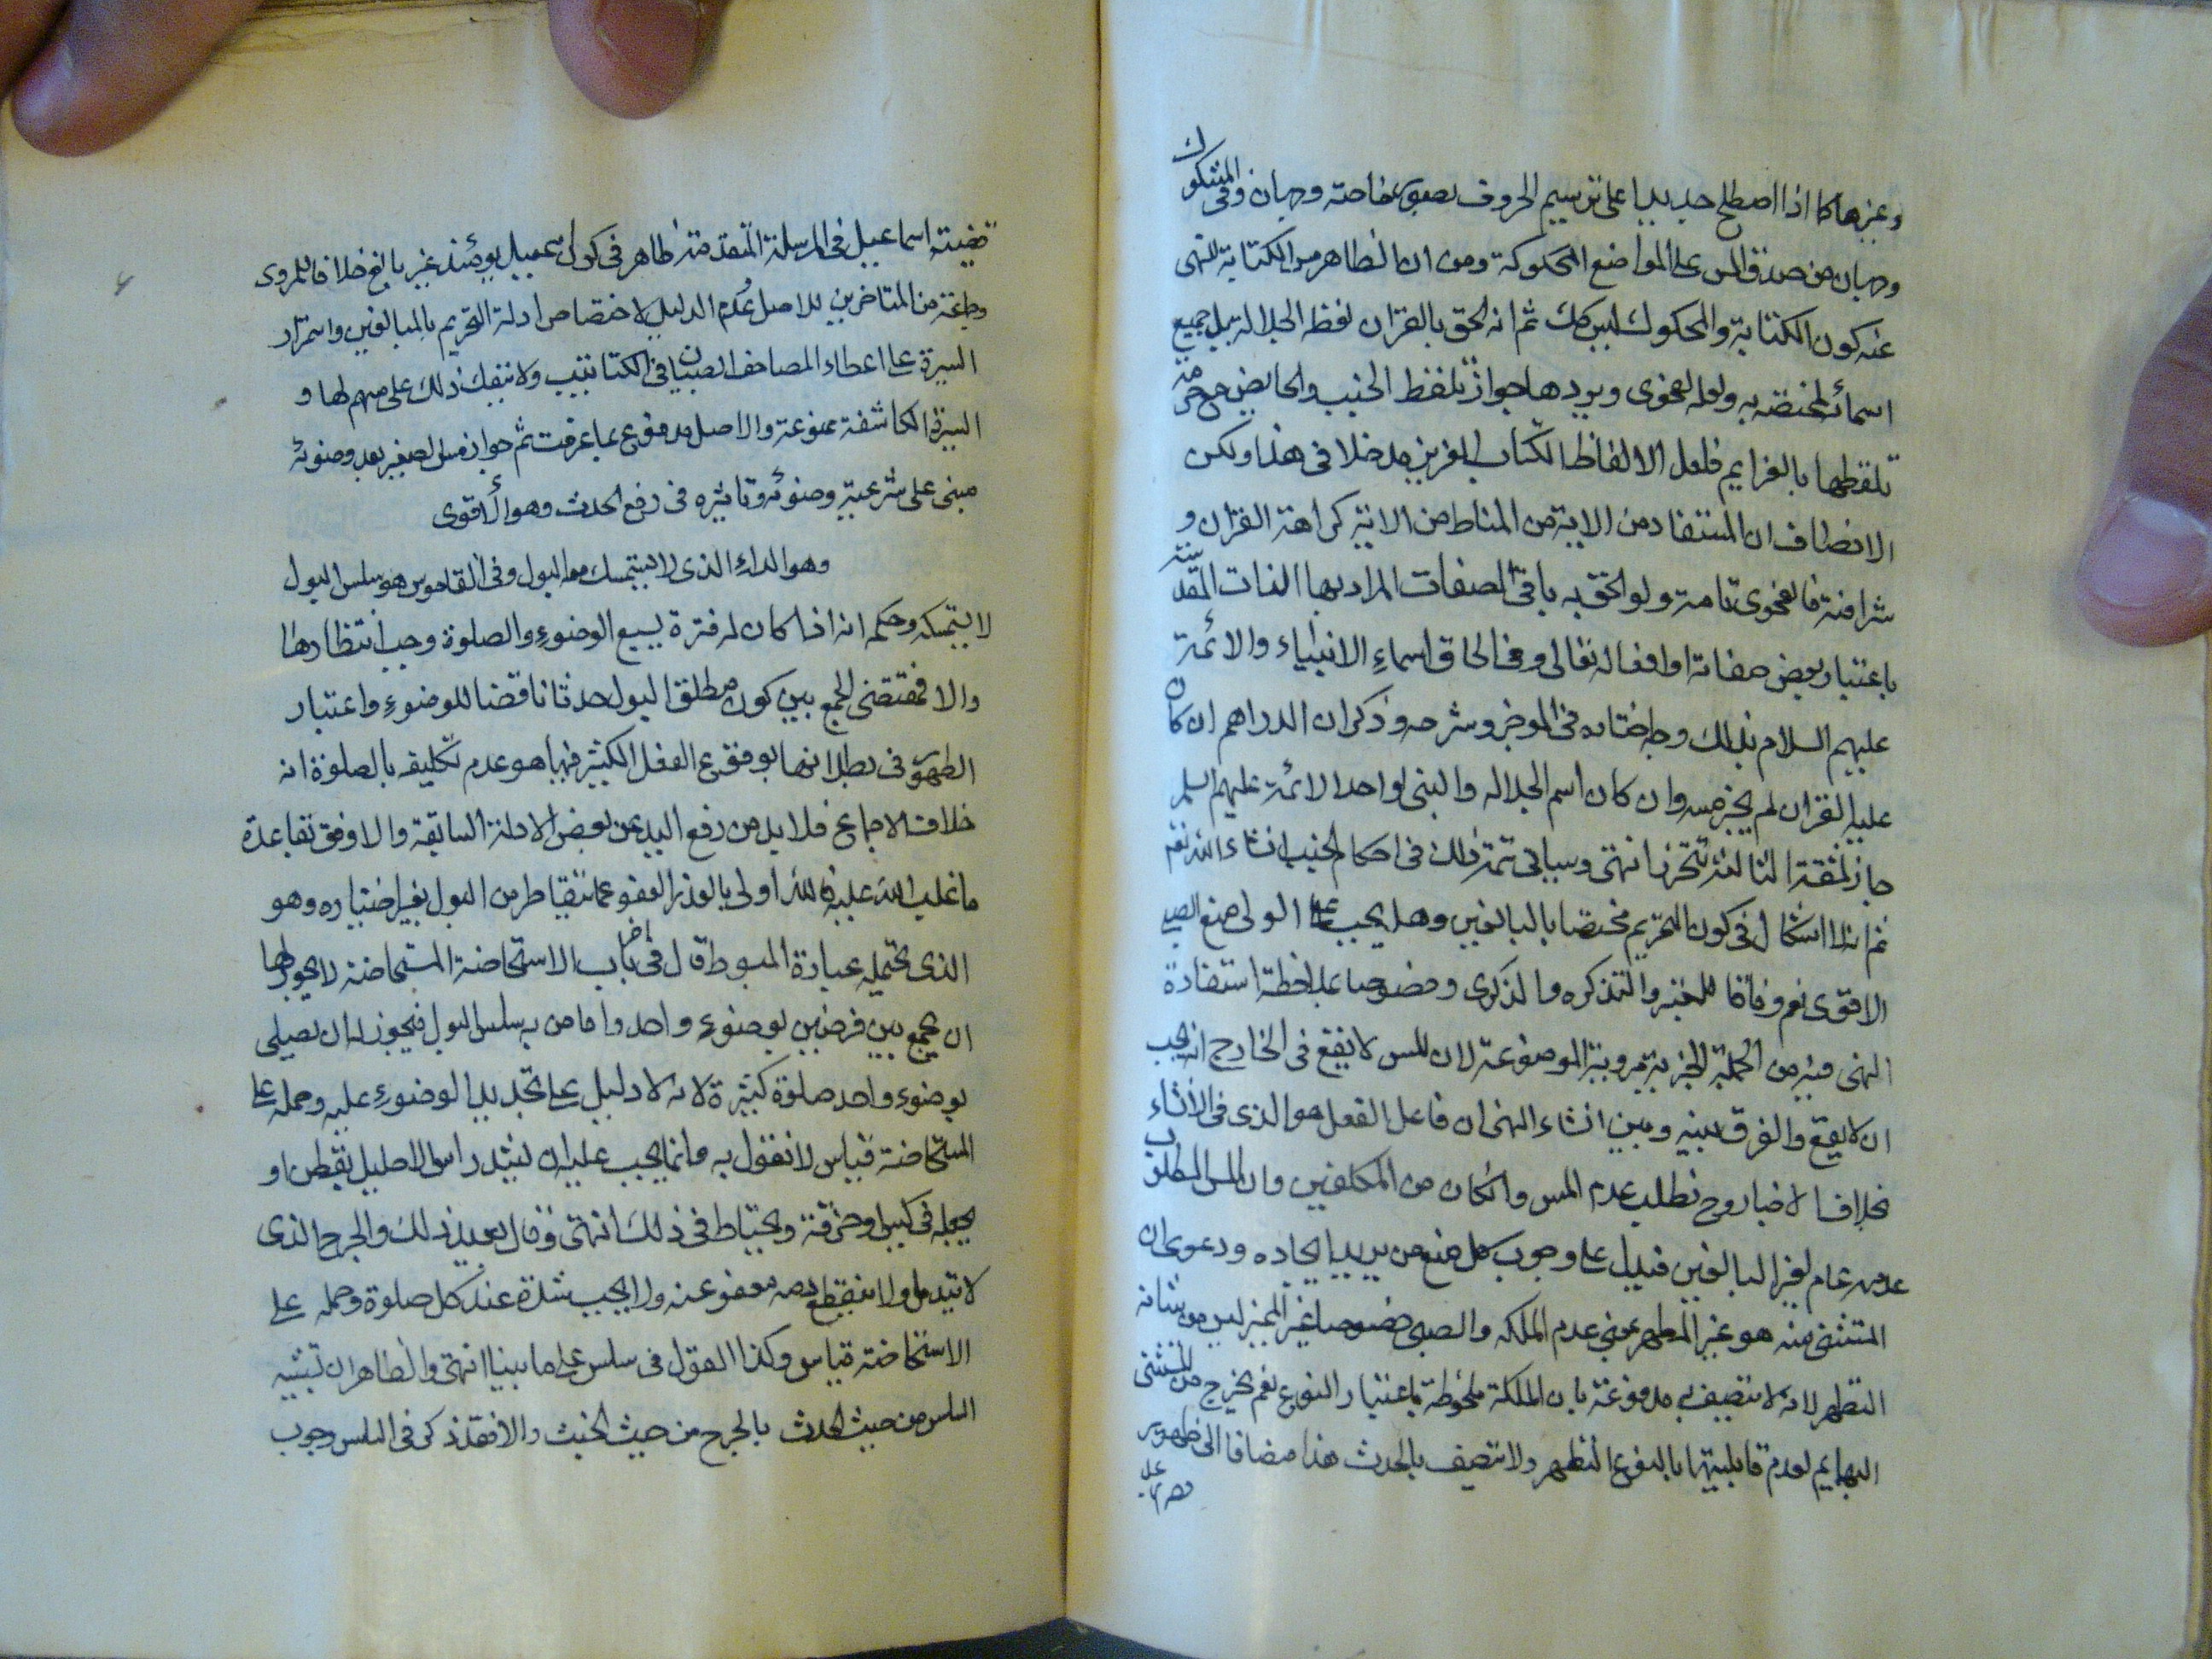 وغيرها كما اذا اصطلح جديدا على ترسيم الحروف بصورة خاصة وجهان وفى المنكوك
وجهان من صدق المس على المواضع المحكوكة ومن ان الظاهر من الكتابة النهى
عنه كون الكتابة والمحكوك ليس كك ثم انه الحق بالقران لفظ الجلالة بل جميع
اسمائه المختصة به ولعله لفحوى ويردها جواز تلفظ الجنب والحايض مع حرمة
تلفظها بالعزايم فلعل الالفاظ الكتاب العزيز مدخلا فى هذا ولكن
الانصاف ان المستفاد من الاية من المناط من الاية كراهة القران و
شرافته فالفحوى تامة ولو الحق به باقى الصفات المراد بها الذات المقدسة
باعتبار بعض صفاته او افعاله تعالى وفى الحاق اسماء الانبياء والائمة
عليهم السلام بذلك وجه اختاره فى الموجز وشرحه وذكر ان الدراهم ان كان
عليه القران لم يجز مسه وان كان اسم الجلاله والنبى او احد الائمة عليهم السلم
جاز لمشقة التحرز انتهى وسياتى تمة ذلك فى احكام الجنب انشاء الله نعم
ثم انه لا اشكال فى كون التحريم مختصا بالبالغين وهل يجب على الولى منع الصبى
الاقوى نعم وفاقا للمعتبر والتذكره والذكرى وخصوصا بملاحظة استفادة
النهى فيه من الجملة الخبرية مروية الموضوعة لان المس لا يقع فى الخارج اى يجب
ان لا يقع والفرق بينه وبين انشاء النهى ان فاعل الفعل هو الذى فى الانشاء
بخلاف الاخبار وح نطلب عدم المس وان كان من المكلفين وان المس المطلوب
عدمه عام لغير البالغين فيدل على وجوب كل منع من يريد ايجاده ودعوى ان
المستثنى منه هو غير المطهر بمعنى عدم الملكه والصبى خصوصا غير المميز ليس من شانه
التطهر لانه لا يتصف به مدفوعة بان الملكة ملحوظة باعتبار النوع نعم يخرج من المستثنى
البهايم لعدم قابليتها بالنوع التطهر ولا تتصف بالحدث هذا مضافا الى ظهور
قضية اسماعيل فى المرسلة المتقدمة ظاهر فى كون اسمعيل يومئذ غير بالغ خلافا للمروى
وجماعة من المتاخرين للاصل بعدم الدليل لاختصاص ادلة التحريم بالبالغين واستمرار
السيرة على اعطاء المصاحف الصبيان فى الكتاتيب ولا ينفك ذلك على مسهم لها و
السيرة الكاشفة ممنوعة والاصل مدفوع بما عرفت ثم جواز مس الصغير بعد وضوئه
مبنى على شرعية وضوئه وتاثيره فى رفع الحدث وهو الاقوى
وهو الداء الذى لا يستمسك معه البول وفى القاموس هو سلس البول
لا يستمسكه وحكمه انه اذا كان له فترة يسع الوضوء والصلوة وجب انتظارها
والا فمقتضى الجمع بين كون مطلق البول حدثا ناقضا للوضوء واعتبار
الطهور فى بطلانها بوقوع الفعل الكثير فيها هو عدم تكليفه بالصلوة انه
خلاف الاجماع فلا بد من رفع اليد عن بعض الادلة السابقة والاوفق بقاعدة
ما غلب الله عليه فالله اولى بالعذر العفو عما يتقاطر من البول بغير اختياره وهو
الذى يحتمله عبارة المبسوط قال فى اخر باب الاستحاضة المستحاضة لا يجوز لها
ان يجمع بين فرضين بوضوء واحد واما من به سلس البول فيجوز له ان يصلى
بوضوء واحد صلوة كثيرة لانه لا دليل على تجديد الوضوء عليه وحمله على
المستحاضة قياس لا نقول به وانما يجب عليه ان يشد راس الاحليل بقطن او
يجعله فى كيس او خرقة ويحتاط فى ذلك انتهى وقال بعيد ذلك والجرح الذى
لا يندمل ولا ينقطع دمه معفو عنه ولا يجب شده عند كل صلوة وحمله على
الاستحاضة قياس وكذا القول فى سلس على ما بيناه انتهى والظاهر ان تشبيه
السلس من حيث الحدث بالجرح من حيث الخبث والا فقد ذكر فى السلس وجوب